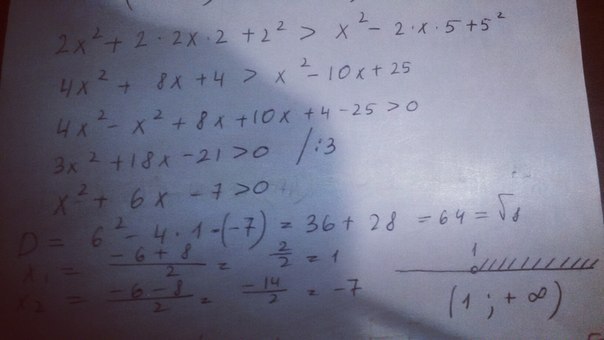 2x² + 2 · 2x · 2 + 2² > x² - 2 · x · 5 + 5²
4x² + 8x + 4 > x² - 10x + 25
4x² - x² + 8x + 10x + 4 - 25 > 0
3x² + 18x - 21 > 0 /:3
x² + 6x - 7 > 0
D = 6² - 4 · 1 · (-7) = 36 + 28 = 64 = √8
x₁ = (-6 + 8)/2 = 2/2 = 1
x₂ = (-6 - 8)/2 = -14/2 = -7
1
(1 ; + ∞)